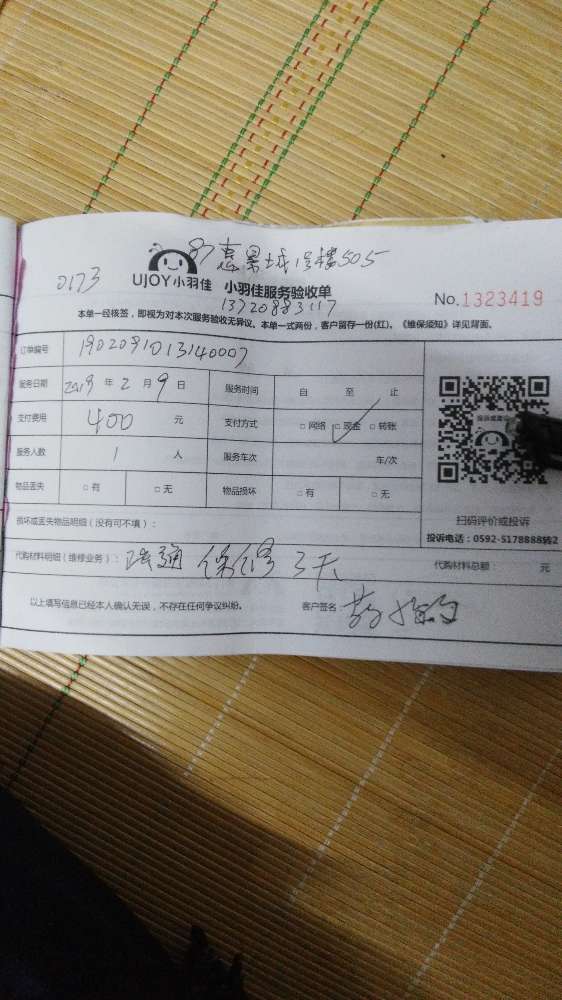 惠景城1号楼505
0173
UJOY小羽佳 小羽佳服务验收单
13720883117
No.1323419
本单一经核签，即视为对本次服务验收无异议。本单一式两份，客户留存一份(红)。《维保须知》详见背面。
订单编号 1902091013140007
服务日期 2019 年 2 月 9 日 服务时间 自 至 止
支付费用 400 元 支付方式 □ 网络 □ 现金 □ 转账
服务人数 1 人 服务车次 车/次
物品丢失 □ 有 □ 无 物品损坏 □ 有 □ 无
扫码评价或投诉
损坏或丢失物品明细（没有可不填）：
投诉电话：0592-5178888转2
代购材料明细（维修业务）： 疏通 保修3天 代购材料总额： 元
以上填写信息已经本人确认无误，不存在任何争议纠纷。 客户签名：